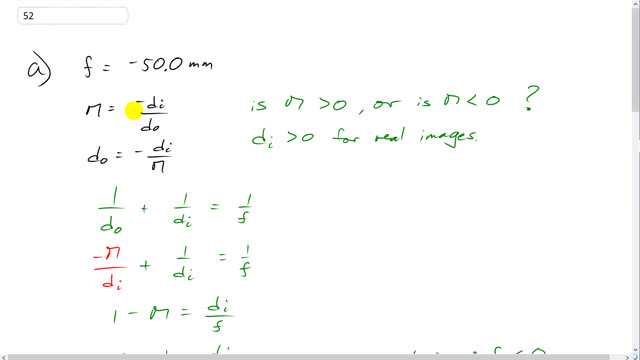 52
a) f = -50.0 mm
M = -di/do is M > 0, or is M < 0 ?
do = - di/M di > 0 for real images.
1/do + 1/di = 1/f
-M/di + 1/di = 1/f
1 - M = di/f